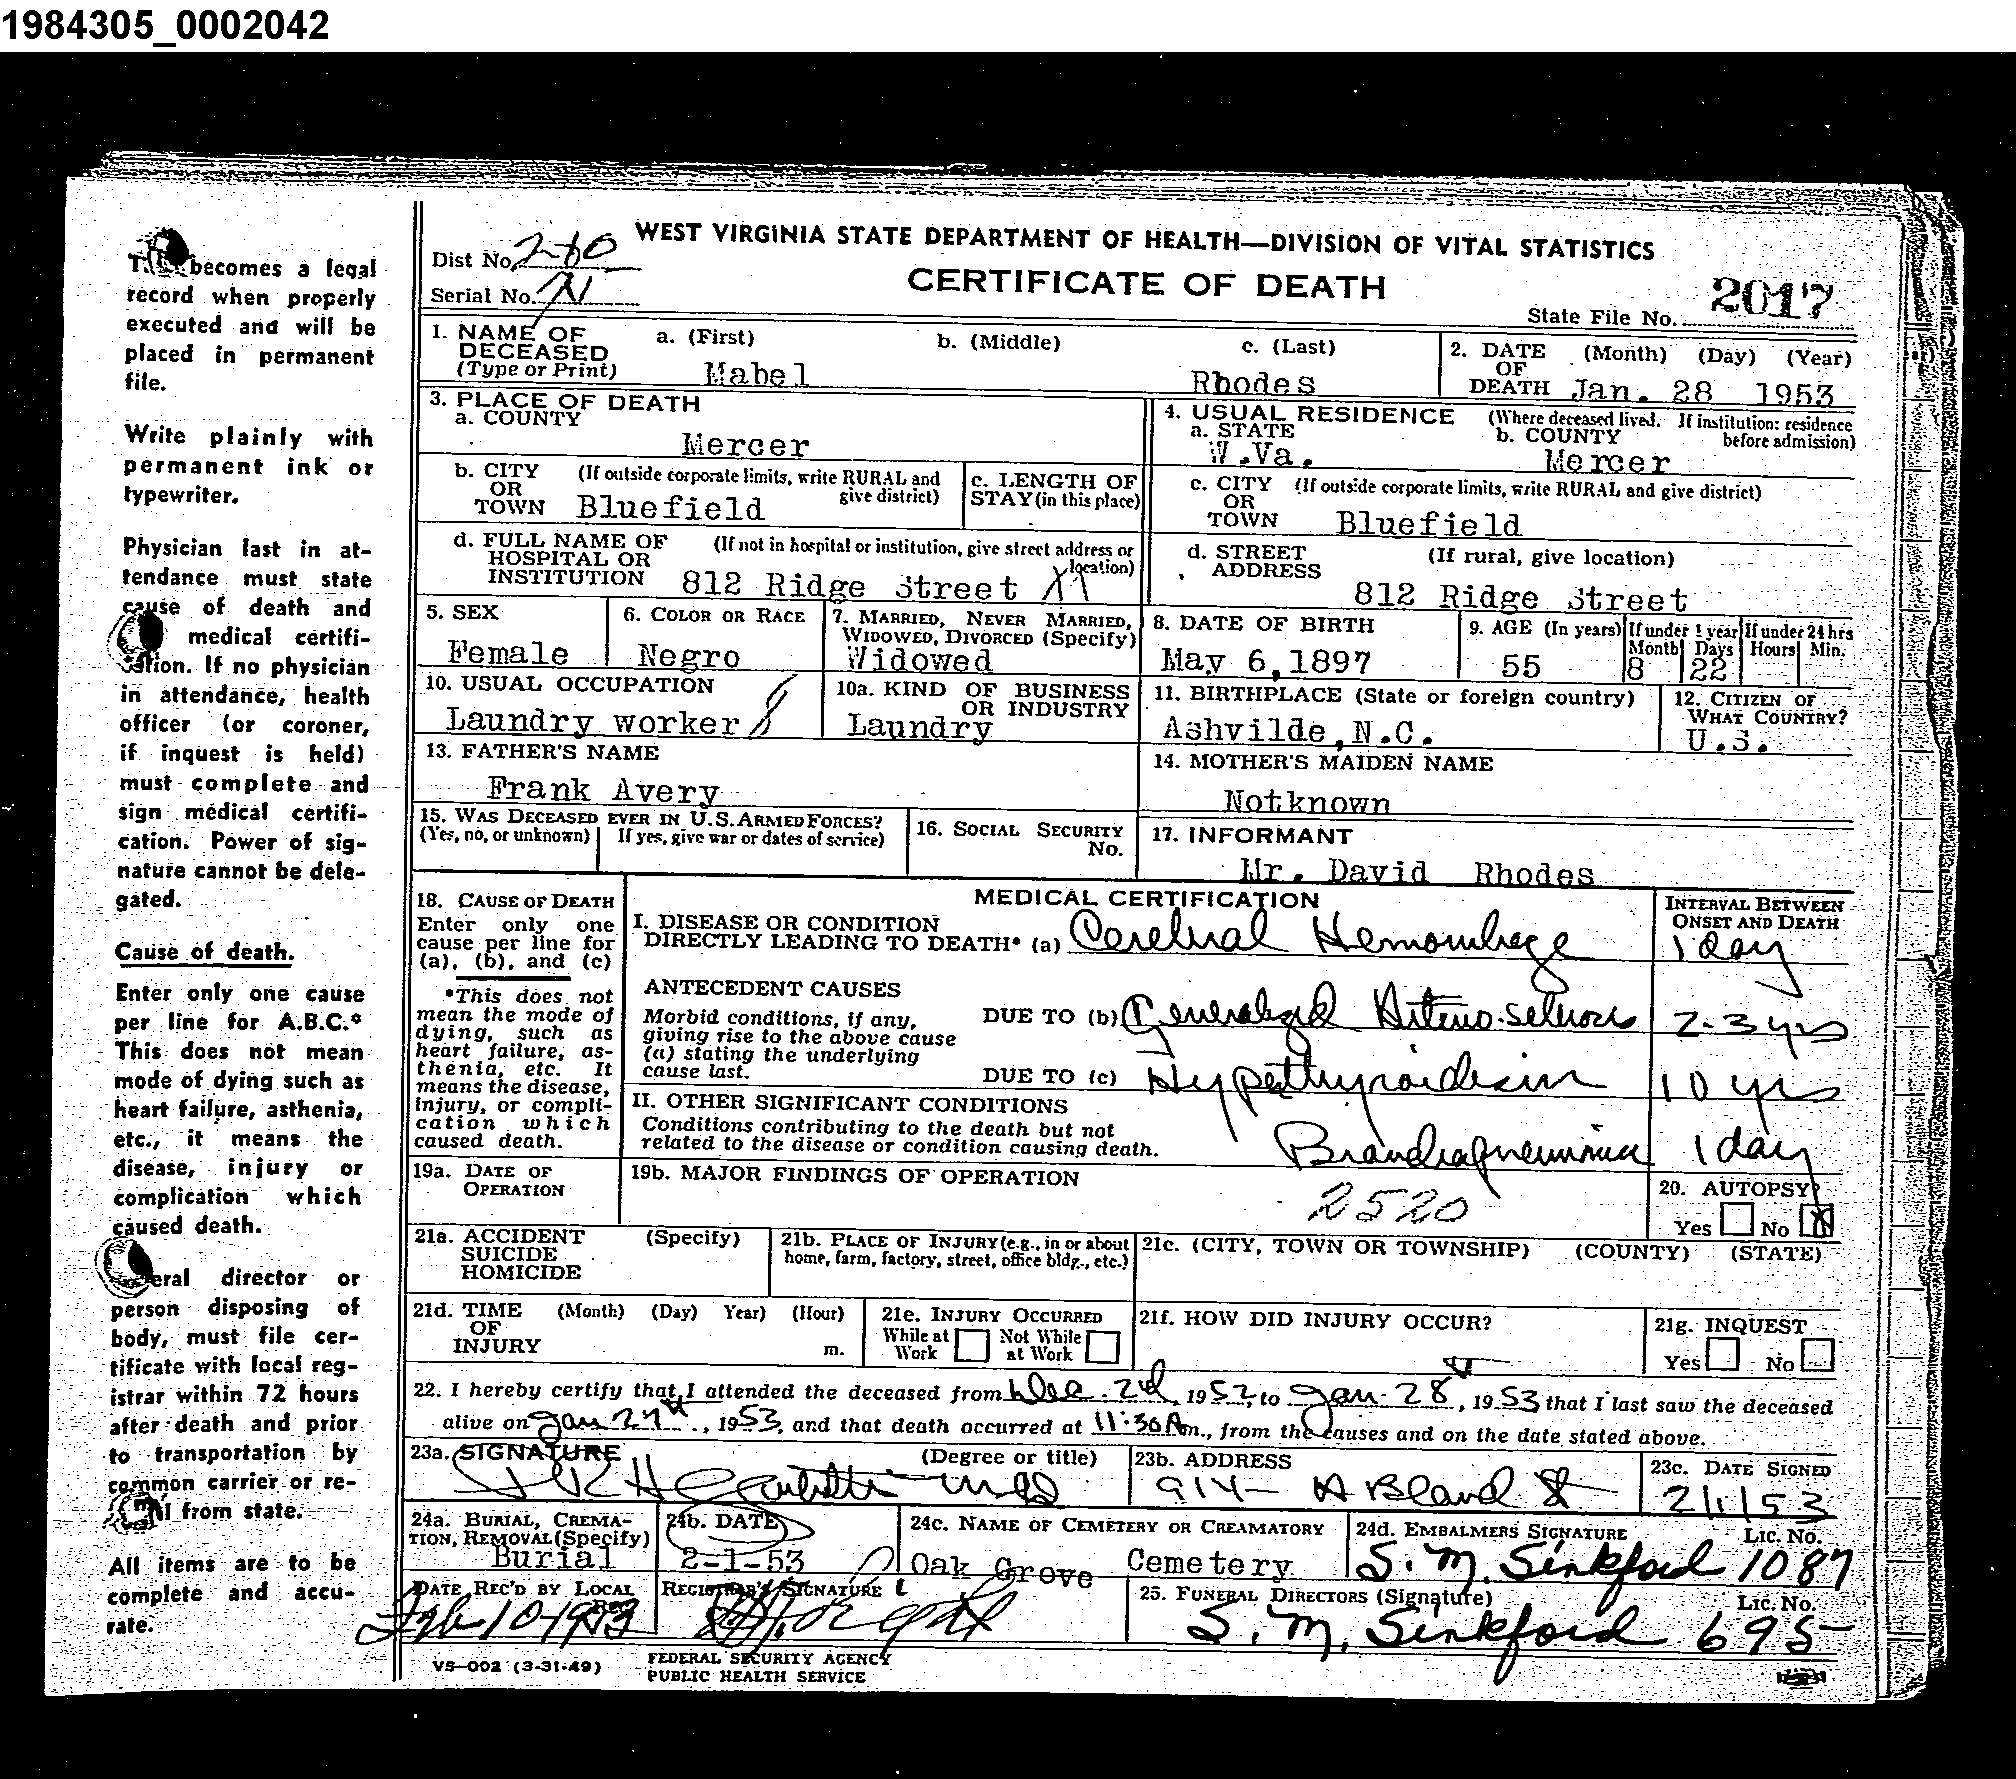 1984305_0002042
WEST VIRGINIA STATE DEPARTMENT OF HEALTH—DIVISION OF VITAL STATISTICS
CERTIFICATE OF DEATH
Dist No. 280
Serial No.
State File No. 2017
becomes a legal
record when properly
executed and will be
placed in permanent
file.
Write plainly with
permanent ink or
typewriter.
Physician last in at-
tendance must state
cause of death and
medical certifi-
cation. If no physician
in attendance, health
officer (or coroner,
if inquest is held)
must complete and
sign medical certifi-
cation. Power of sig-
nature cannot be dele-
gated.
Cause of death.
Enter only one cause
per line for A.B.C.*
This does not mean
mode of dying such as
heart failure, asthenia,
etc., it means the
disease, injury or
complication which
caused death.
eral director or
person disposing of
body, must file cer-
tificate with local reg-
istrar within 72 hours
after death and prior
to transportation by
common carrier or re-
al from state.
All items are to be
complete and accu-
rate.
1. NAME OF DECEASED (Type or Print) a. (First) b. (Middle) c. (Last)
Mabel Rhodes
2. DATE OF DEATH (Month) (Day) (Year)
Jan. 28 1953
3. PLACE OF DEATH
a. COUNTY
Mercer
4. USUAL RESIDENCE (Where deceased lived. If institution: residence before admission)
a. STATE W.Va. b. COUNTY Mercer
b. CITY OR TOWN (If outside corporate limits, write RURAL and give district)
Bluefield
c. LENGTH OF STAY (in this place)
c. CITY OR TOWN (If outside corporate limits, write RURAL and give district)
Bluefield
d. FULL NAME OF HOSPITAL OR INSTITUTION (If not in hospital or institution, give street address or location)
812 Ridge Street
d. STREET ADDRESS (If rural, give location)
812 Ridge Street
5. SEX
Female
6. COLOR OR RACE
Negro
7. MARRIED, NEVER MARRIED, WIDOWED, DIVORCED (Specify)
Widowed
8. DATE OF BIRTH
May 6,1897
9. AGE (In years)
55
If under 1 year Month Days
8 22
If under 24 hrs Hours Min.
10. USUAL OCCUPATION
Laundry worker
10a. KIND OF BUSINESS OR INDUSTRY
Laundry
11. BIRTHPLACE (State or foreign country)
Ashvilde,N.C.
12. CITIZEN OF WHAT COUNTRY?
U.S.
13. FATHER'S NAME
Frank Avery
14. MOTHER'S MAIDEN NAME
Notknown
15. WAS DECEASED EVER IN U.S. ARMED FORCES?
(Yes, no, or unknown) If yes, give war or dates of service)
16. SOCIAL SECURITY No.
17. INFORMANT
Mr. David Rhodes
18. CAUSE OF DEATH
Enter only one
cause per line for
(a), (b), and (c)
*This does not
mean the mode of
dying, such as
heart failure, as-
thenia, etc. It
means the disease,
injury, or compli-
cation which
caused death.
MEDICAL CERTIFICATION
INTERVAL BETWEEN ONSET AND DEATH
I. DISEASE OR CONDITION
DIRECTLY LEADING TO DEATH* (a) Cerebral Hemorrhage 1 day
ANTECEDENT CAUSES
Morbid conditions, if any,
giving rise to the above cause
(a) stating the underlying
cause last.
DUE TO (b) Generalized Arterio-sclerosis 2-3 yrs
DUE TO (c) Hyperthyroidism 10 yrs
II. OTHER SIGNIFICANT CONDITIONS
Conditions contributing to the death but not
related to the disease or condition causing death.
Bronchopneumonia 1 day
19a. DATE OF OPERATION
19b. MAJOR FINDINGS OF OPERATION
2520
20. AUTOPSY?
Yes No X
21a. ACCIDENT SUICIDE HOMICIDE (Specify)
21b. PLACE OF INJURY (e.g., in or about home, farm, factory, street, office bldg., etc.)
21c. (CITY, TOWN OR TOWNSHIP) (COUNTY) (STATE)
21d. TIME OF INJURY (Month) (Day) Year) (Hour) m.
21e. INJURY OCCURRED
While at Work Not While at Work
21f. HOW DID INJURY OCCUR?
21g. INQUEST
Yes No
22. I hereby certify that I attended the deceased from Dec. 2nd, 1952, to Jan. 28, 1953 that I last saw the deceased
alive on Jan 27th, 1953, and that death occurred at 11:30Am., from the causes and on the date stated above.
23a. SIGNATURE (Degree or title)
23b. ADDRESS
914- A Bland St
23c. DATE SIGNED
2/1/53
24a. BURIAL, CREMA-
TION, REMOVAL (Specify)
Burial
24b. DATE
2-1-53
24c. NAME OF CEMETERY OR CREAMATORY
Oak Grove Cemetery
24d. EMBALMERS SIGNATURE Lic. No.
S. M. Sinkford 1087
DATE REC'D BY LOCAL REG.
Feb 10 1953
REGISTRAR'S SIGNATURE
25. FUNERAL DIRECTORS (Signature) Lic. No.
S. M. Sinkford 695
VS-002 (3-31-49)
FEDERAL SECURITY AGENCY
PUBLIC HEALTH SERVICE